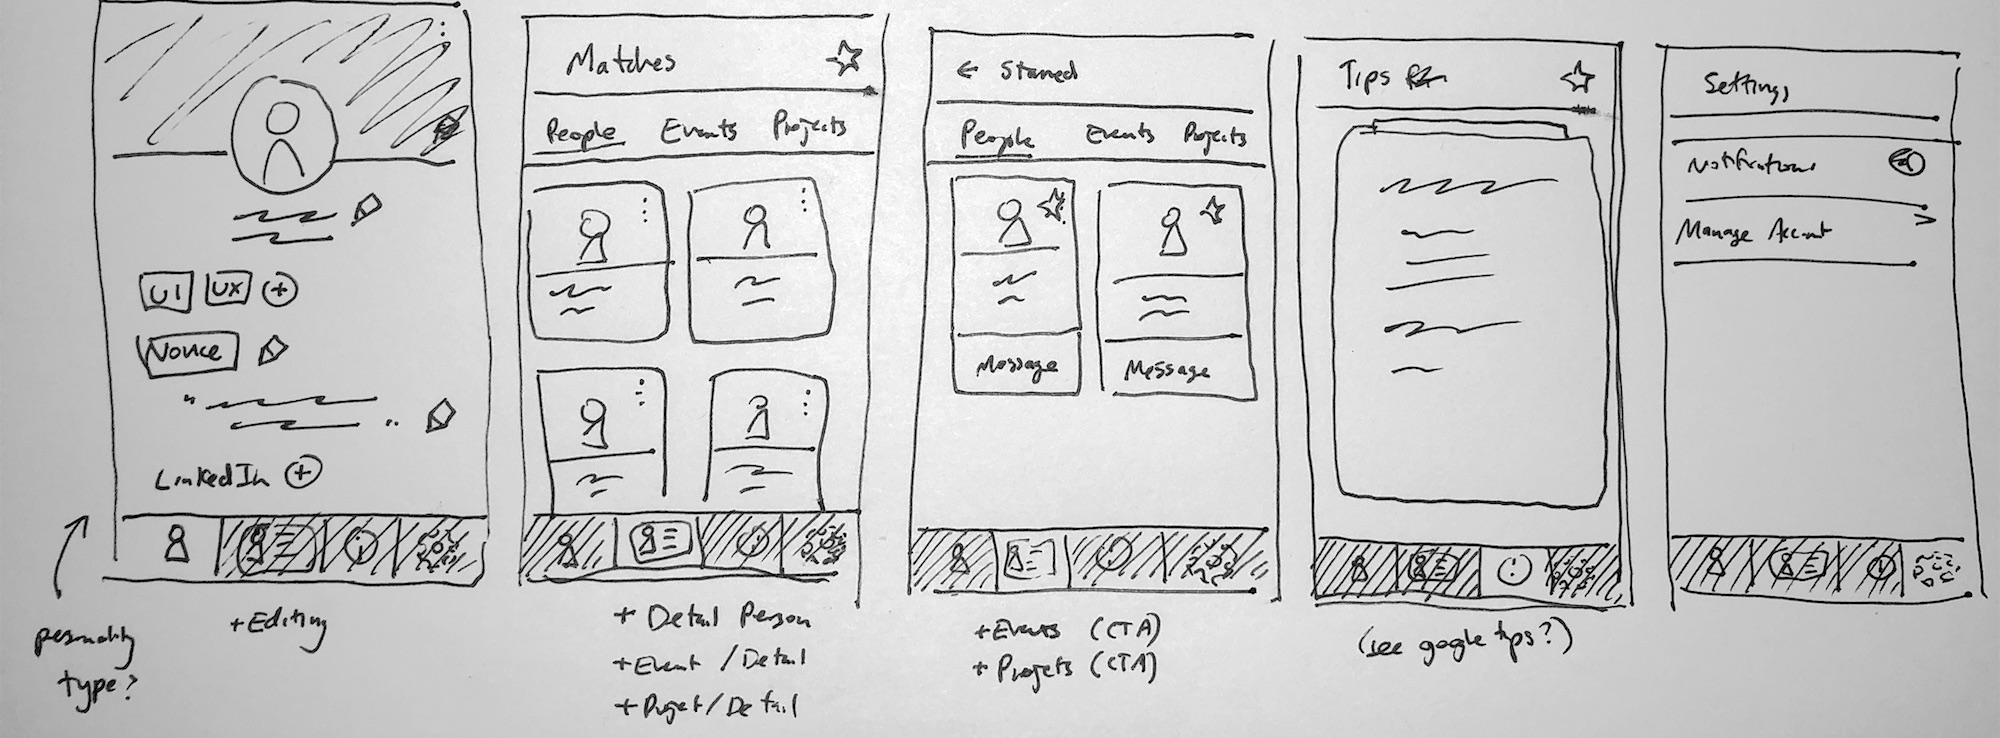 UI UX +
Novice
LinkedIn +
personality
type?
+Editing
Matches
People Events Projects
+ Detail Person
+Event / Detail
+Projet/Detail
← Starred
People Events Projects
Message Message
+Events (CTA)
+ Projets (CTA)
Tips
(see google tips?)
Settings
Notifications
Manage Account >